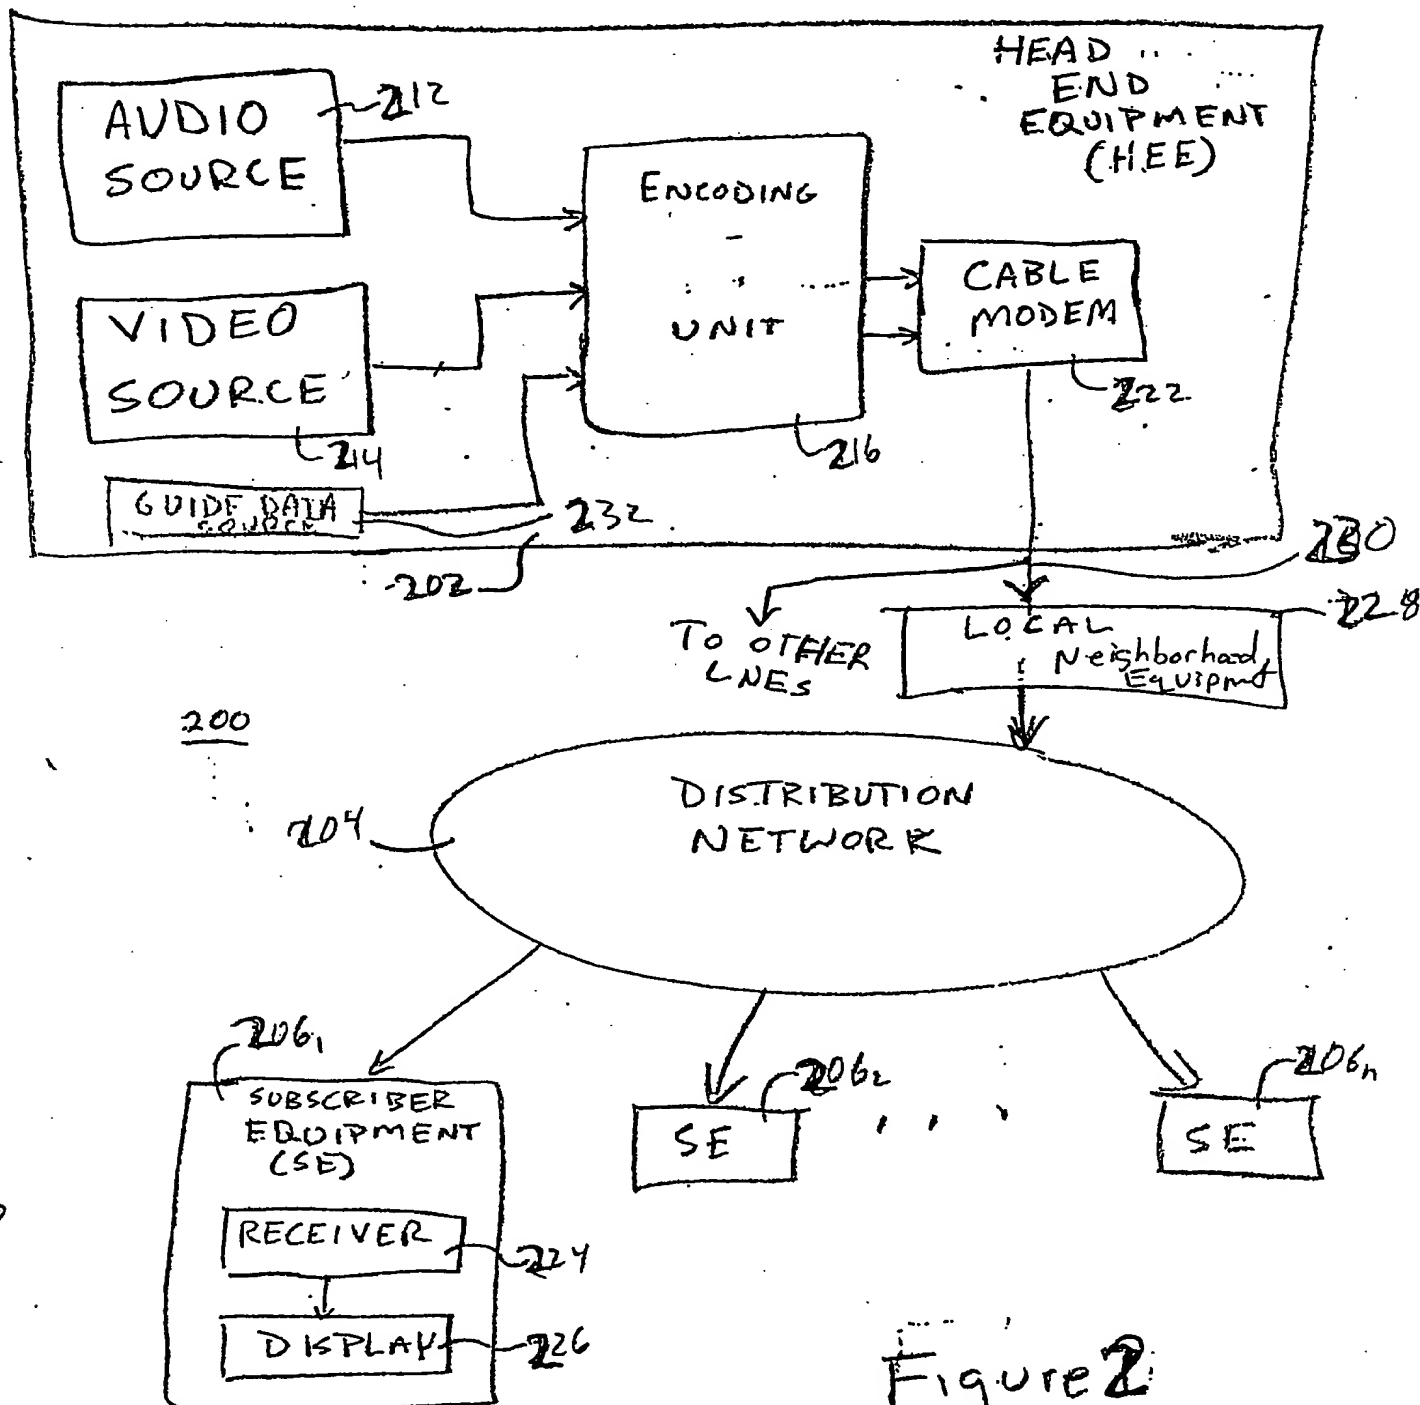 HEAD
END
EQUIPMENT
(HEE)
AUDIO
SOURCE
212
ENCODING
UNIT
216
CABLE
MODEM
222
VIDEO
SOURCE
214
GUIDE DATA
SOURCE
232
202
230
228
TO OTHER
LNEs
LOCAL
Neighborhood
Equipmt
200
DISTRIBUTION
NETWORK
204
206₁
SUBSCRIBER
EQUIPMENT
(SE)
RECEIVER
224
DISPLAY
226
206₂
SE
. . .
206ₙ
SE
Figure 2